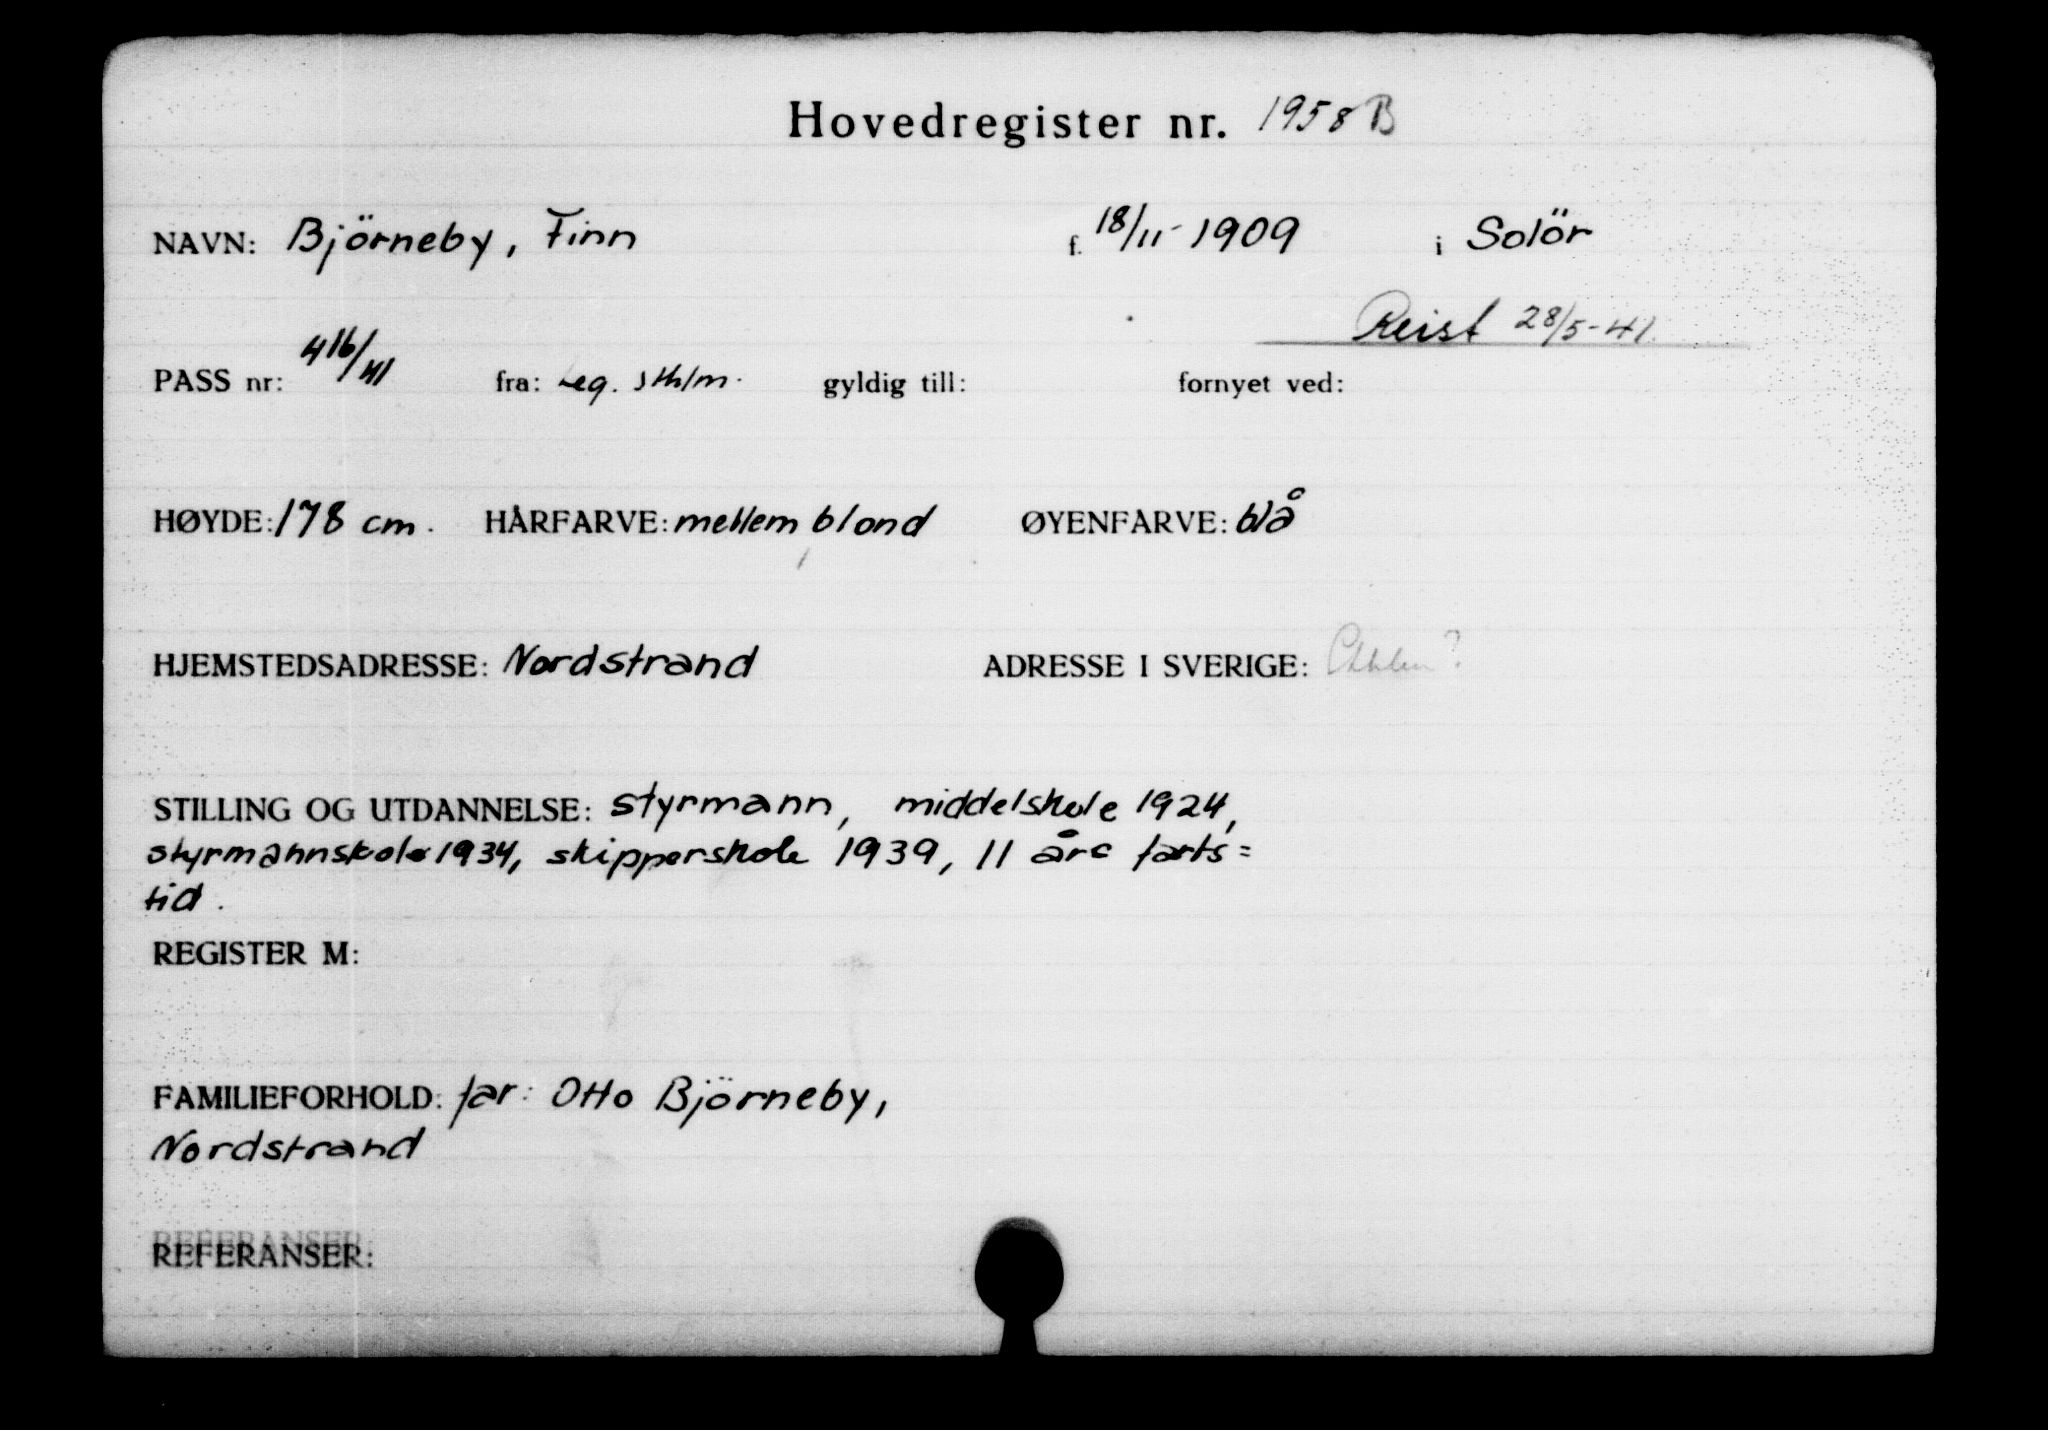 Hovedregister nr. 1958 B
NAVN: Björneby, Finn f. 18/11-1909 i Solör
Reist 28/5-41.
PASS nr: 416/41 fra: Leg. Sthlm. gyldig till: fornyet ved:
HØYDE: 178 cm. HÅRFARVE: mellem blond ØYENFARVE: blå
HJEMSTEDSADRESSE: Nordstrand ADRESSE I SVERIGE:
STILLING OG UTDANNELSE: styrmann, middelskole 1924,
styrmannskole 1934, skipperskole 1939, 11 års farts=
tid.
REGISTER M:
FAMILIEFORHOLD: far: Otto Björneby,
Nordstrand
REFERANSER: